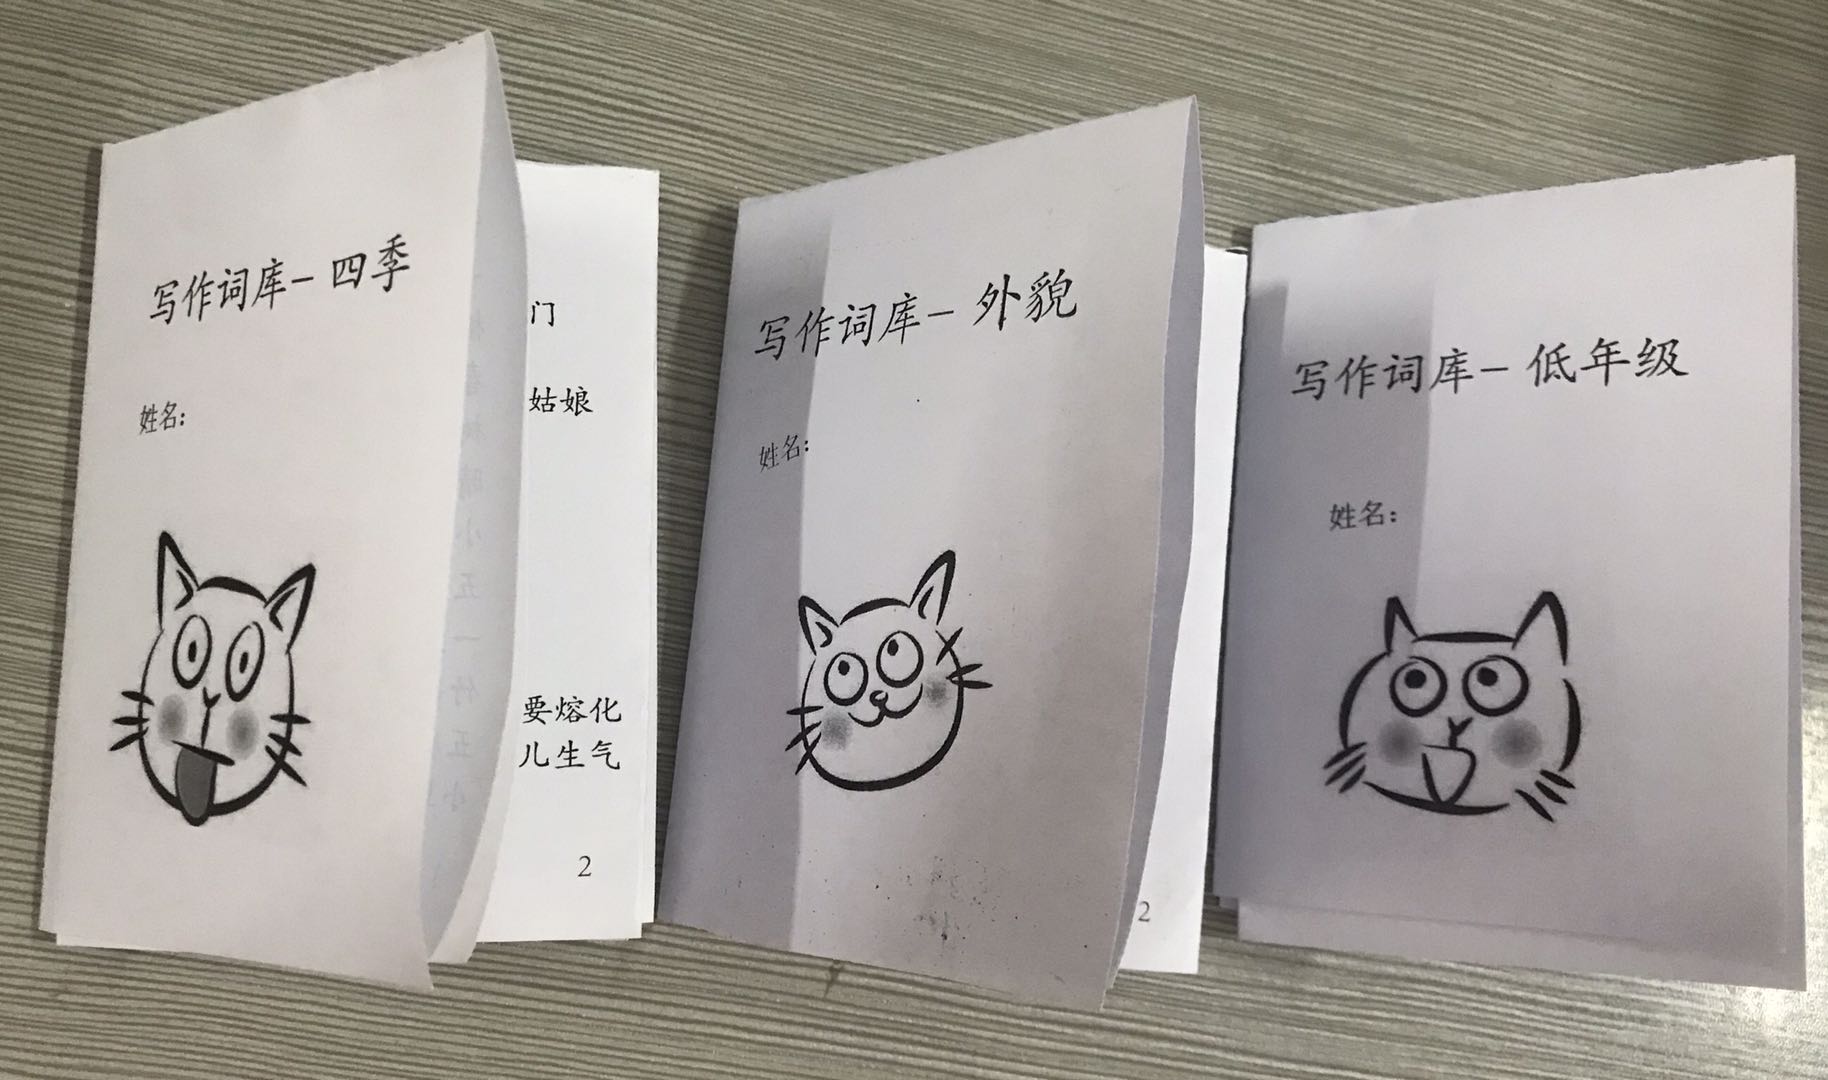 写作词库- 四季
姓名:
门
姑娘
要熔化
儿生气
2
写作词库- 外貌
姓名:
2
写作词库- 低年级
姓名: